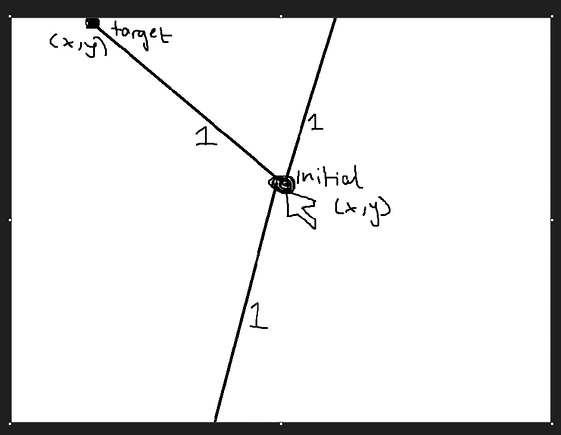 target
(x,y)
1
1
initial
(x,y)
1